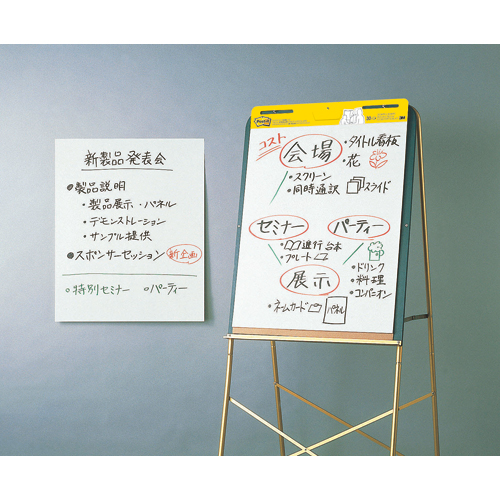 新製品発表会
●製品説明
・製品展示・パネル
・デモンストレーション
・サンプル提供
●スポンサーセッション 新企画
○特別セミナー ○パーティー
Post-it
3M
コスト
会場
・タイトル看板
・花
・スクリーン
・同時通訳
スライド
セミナー
パーティー
・進行台本
・プレート
・ドリンク
・料理
・コンパニオン
展示
・ネームカード
パネル